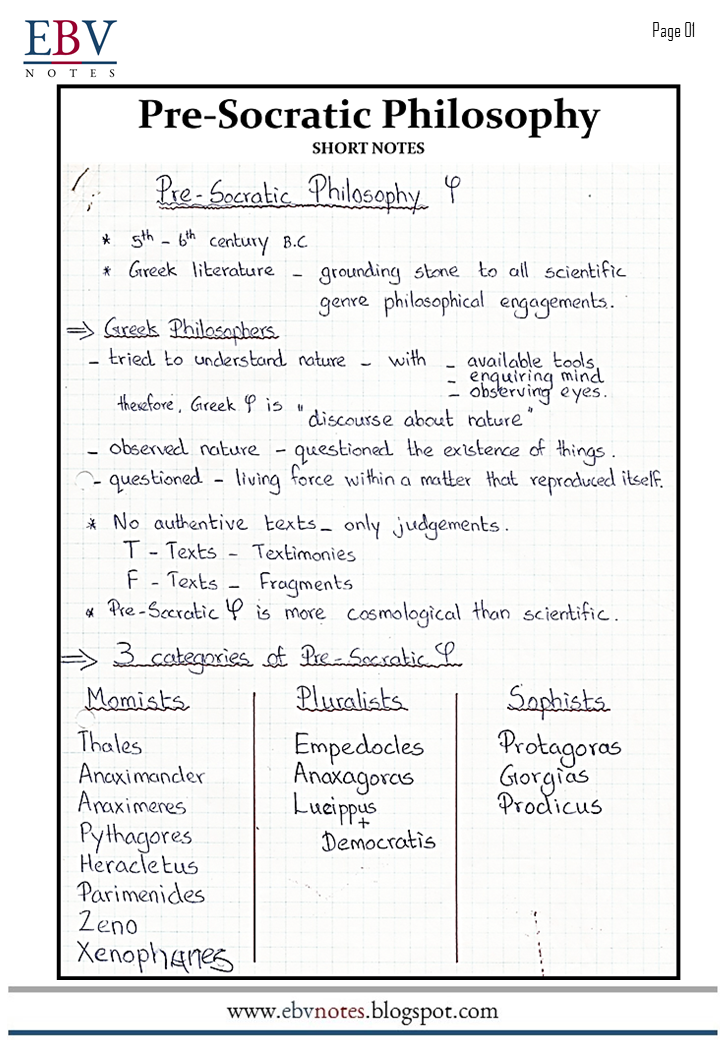 EBV
NOTES
Page 01
Pre-Socratic Philosophy
SHORT NOTES
Pre-Socratic Philosophy φ
* 5th - 6th century B.C
* Greek literature - grounding stone to all scientific
genre philosophical engagements.
⇒ Greek Philosophers
- tried to understand nature - with - available tools
- enquiring mind
- observing eyes.
therefore, Greek φ is "discourse about nature"
- observed nature - questioned the existence of things.
- questioned - living force within a matter that reproduced itself.
* No authentive texts - only judgements.
T - Texts - Textimonies
F - Texts - Fragments
* Pre-Socratic φ is more cosmological than scientific.
⇒ 3 categories of Pre-Socratic φ
Momists
Thales
Anaximander
Anaximeres
Pythagores
Heracletus
Parimenides
Zeno
Xenophanes
Pluralists
Empedocles
Anaxagoras
Lucippus
+
Democratis
Sophists
Protagoras
Gorgias
Prodicus
www.ebvnotes.blogspot.com